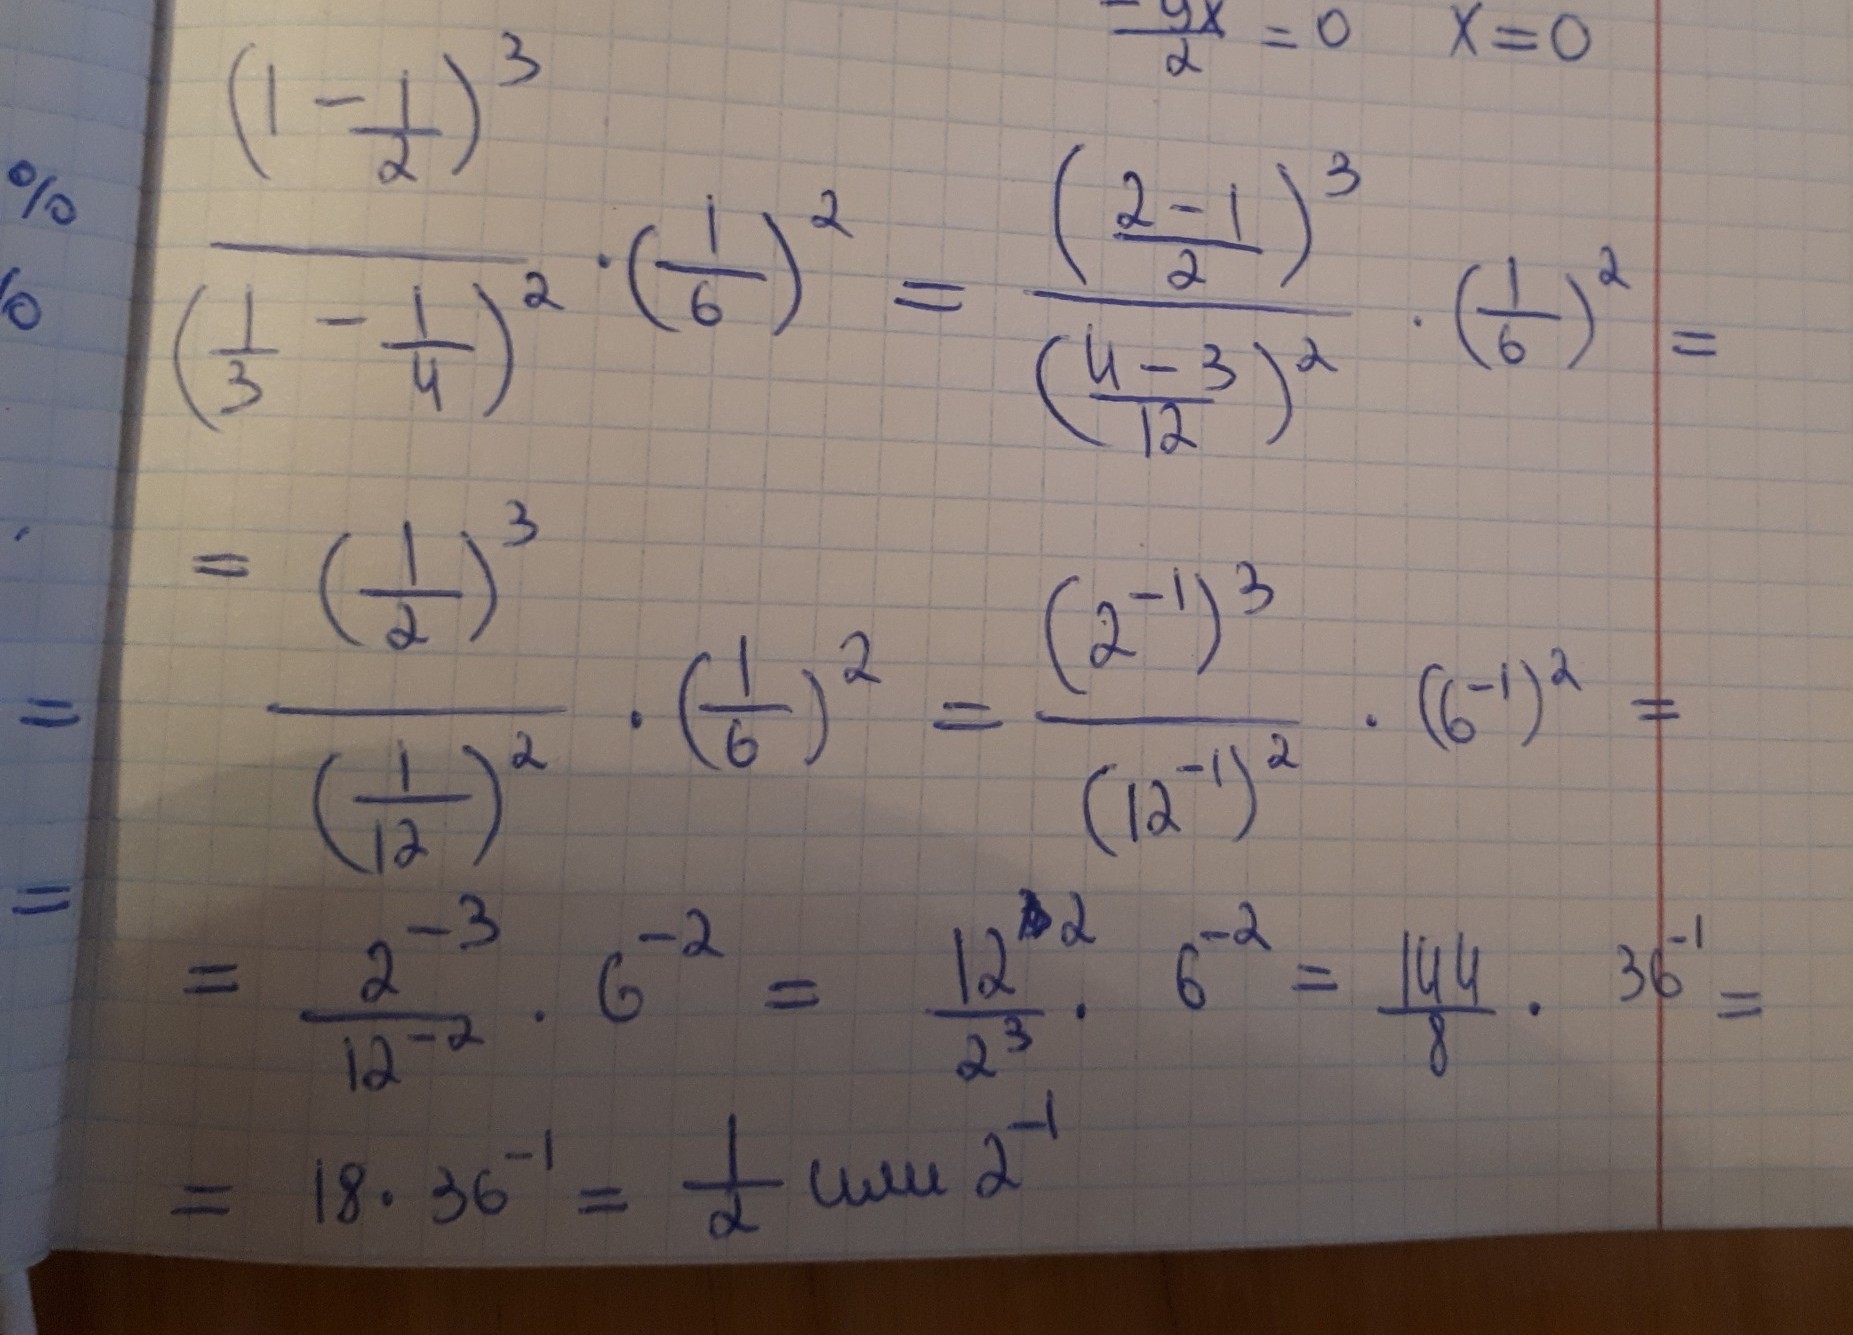 -9x/2 = 0 x = 0
%
%
(1 - 1/2)^3 / (1/3 - 1/4)^2 · (1/6)^2 = ((2-1)/2)^3 / ((4-3)/12)^2 · (1/6)^2 =
= (1/2)^3 / (1/12)^2 · (1/6)^2 = (2^-1)^3 / (12^-1)^2 · (6^-1)^2 =
=
=
= 2^-3 / 12^-2 · 6^-2 = 12^2 / 2^3 · 6^-2 = 144/8 · 36^-1 =
= 18 · 36^-1 = 1/2 или 2^-1